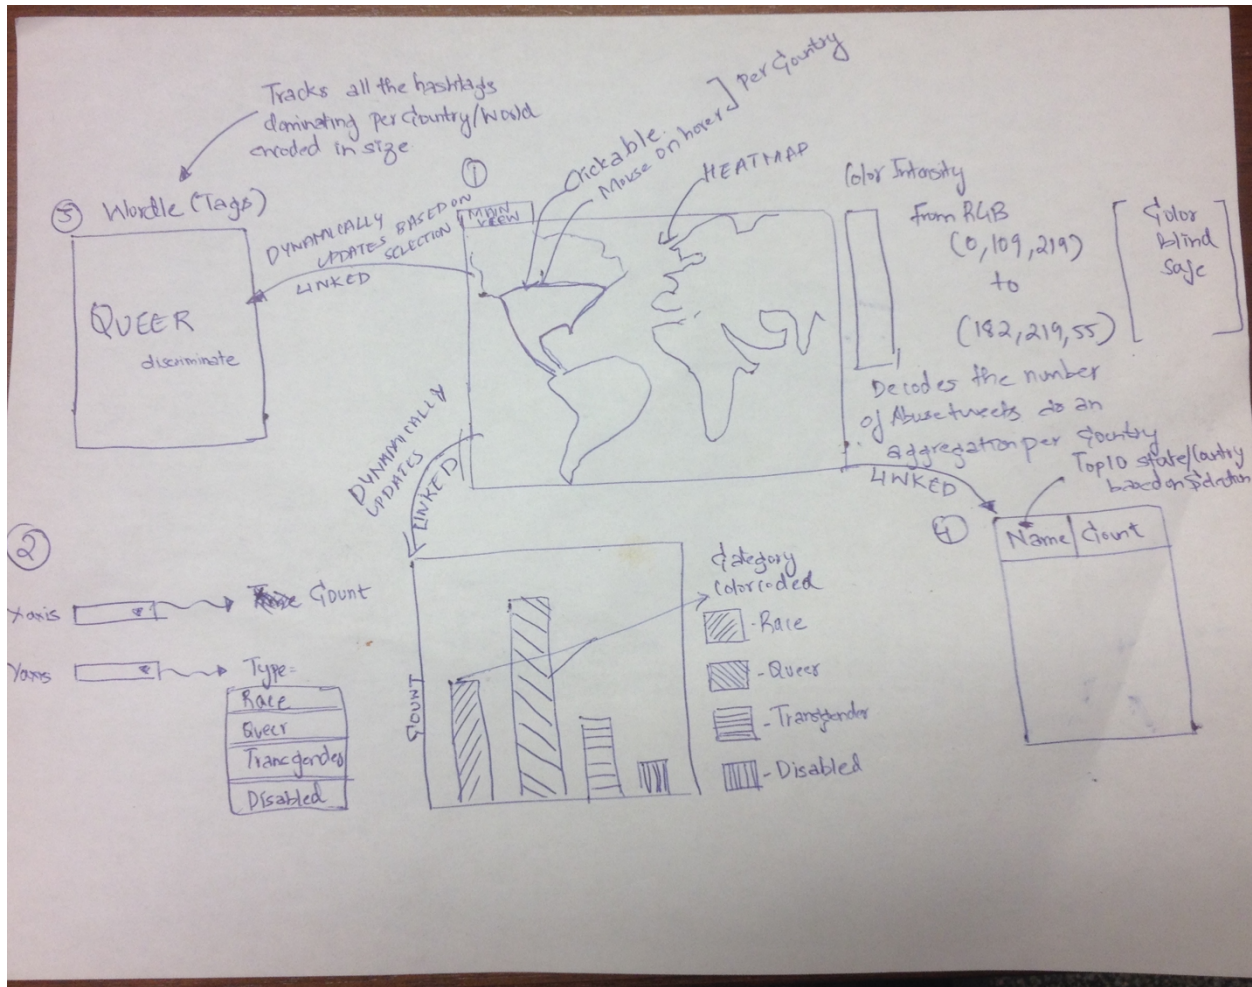 Tracks all the hashtags
dominating per Country/World
encoded in size
③ Wordle (Tags)
QUEER
discriminate
DYNAMICALLY
UPDATES BASED ON
SELECTION
LINKED
①
MAIN
VIEW
Clickable
Mouse on hover
per Country
HEATMAP
Color Intensity
From RGB
(0,109,219)
to
(182,219,55)
Color
blind
safe
Decodes the number
of Abuse tweets do an
aggregation per Country
LINKED
Top 10 state/Country
based on Selection
④
Name Count
DYNAMICALLY
UPDATES
LINKED
②
X axis
Count
Y axis
Type
Race
Queer
Transgender
Disabled
COUNT
Category
Color coded
- Race
- Queer
- Transgender
- Disabled